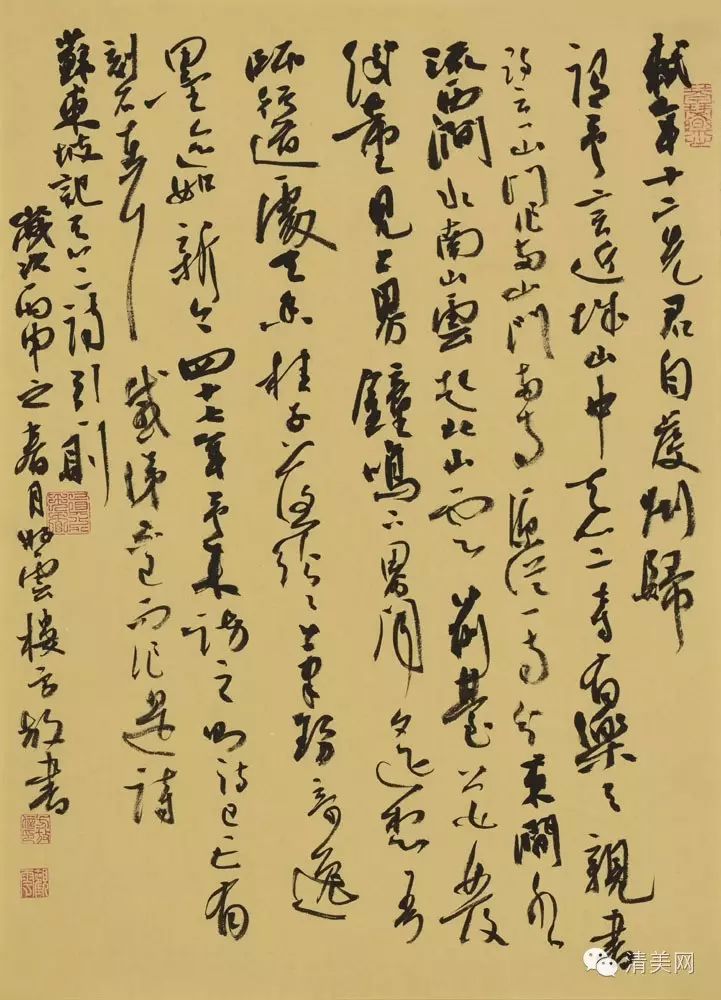 軾年十二先君自虔州歸
謂予言近城山中天竺寺有樂天親書
詩云一山門作兩山門兩寺原從一寺分東澗水
流西澗水南山雲起北山雲前臺花發
後臺見上界鐘鳴下界聞遙想吾
師行道處天香桂子落紛紛筆勢奇逸
墨迹如新今四十七年予來訪之則詩已亡有
刻石存耳感涕不已而作是詩
蘇東坡記天竺詩引一則
歲次丙申之春月雲樓書
清美网